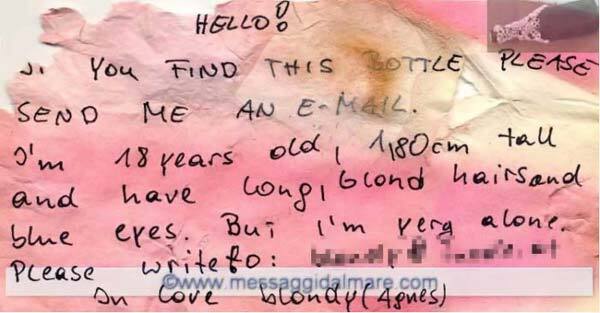 HELLO!
YOU FIND THIS BOTTLE PLEASE
SEND ME AN E-MAIL.
I'm 18 years old, 1,80cm tall
and have long, blond hairs and
blue eyes. But I'm very alone.
Please write to:
©www.messaggidalmare.com
In love blondy (Agnes)